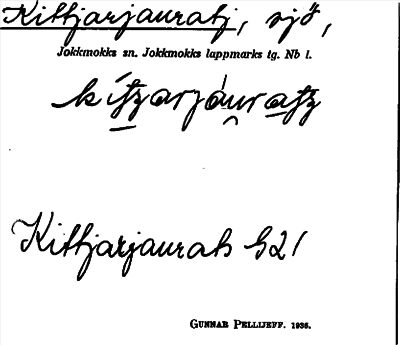 Kittjarjauratj, sjö,
Jokkmokks sn. Jokkmokks lappmarks tg. Nb l.
Kittjarjaurats G21
GUNNAR PELLIJEFF. 1936.